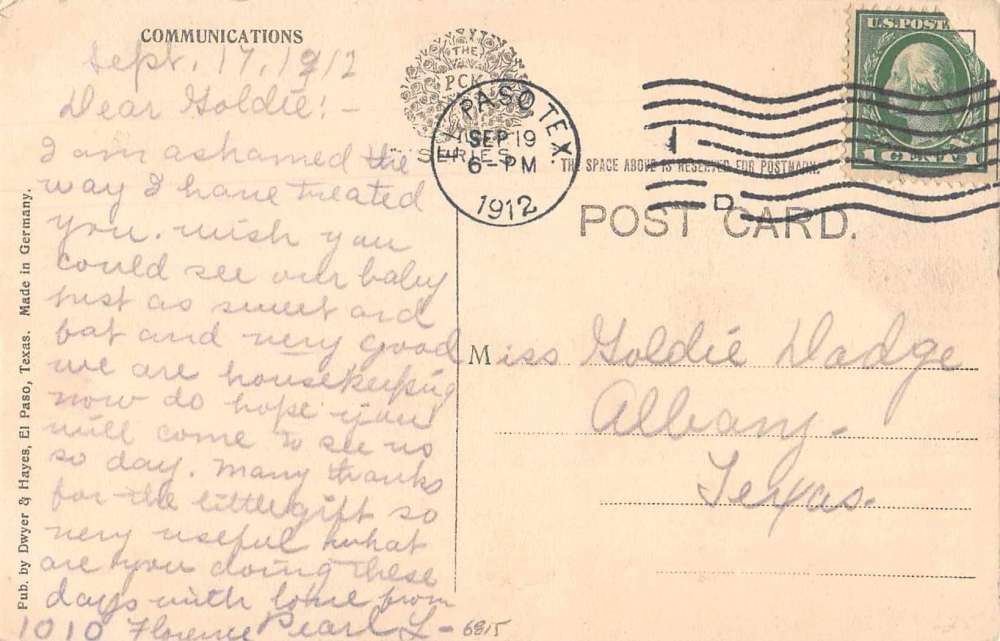 COMMUNICATIONS
Sept. 17, 1912
Dear Goldie! -
I am ashamed the
way I have treated
you. wish you
could see our baby
just as sweet and
fat and very good
we are housekeeping
now do hope you
will come to see us
so day. Many thanks
for the little gift so
very useful what
are you doing these
days with love from
Pearl L-
1010 Florence
6815
Pub. by Dwyer & Hayes, El Paso, Texas. Made in Germany.
THE
PCK
SERIES
EL PASO, TEX.
SEP 19
6-PM
1912
1
D
U.S. POST
1 CENT 1
THE SPACE ABOVE IS RESERVED FOR POSTMARK.
POST CARD.
Miss Goldie Dodge
Albany-
Texas.